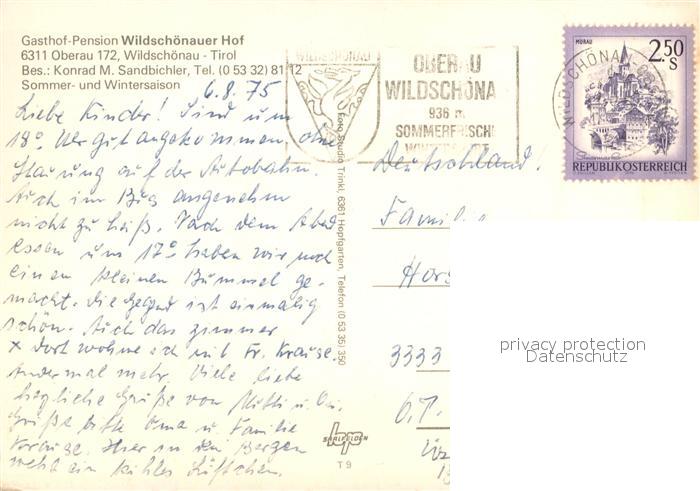 Gasthof-Pension Wildschönauer Hof
6311 Oberau 172, Wildschönau - Tirol
Bes.: Konrad M. Sandbichler, Tel. (0 53 32) 81 12
Sommer- und Wintersaison
6.8.75
Liebe Kinder! Sind um
18° Uhr gut angekommen, ohne
Stauung auf der Autobahn.
Auch im Bus angenehm
nicht zu heiß. Nach dem Abend
essen um 17° haben wir noch
einen kleinen Bummel ge-
macht. Die Gegend ist einmalig
schön. Auch das Zimmer
x dort wohne ich mit Fr. Krause.
Andermal mehr. Viele liebe
herzliche Grüße von Mutti u.
Grüße bitte Oma u. Familie
Krause. Hier in den Bergen
weht ein kühles Lüftchen.
WILDSCHÖNAU
OBERAU
WILDSCHÖNAU
936 m
SOMMERFRISCHE
Foto Studio Trinkl, 6361 Hopfgarten, Telefon (0 53 35) 350
MURAU
2.50 S
REPUBLIK ÖSTERREICH
WILDSCHÖNAU
Deutschland!
Famil
Hors
3333
O.T.
privacy protection
Datenschutz
hp
SAALFELDEN
T 9